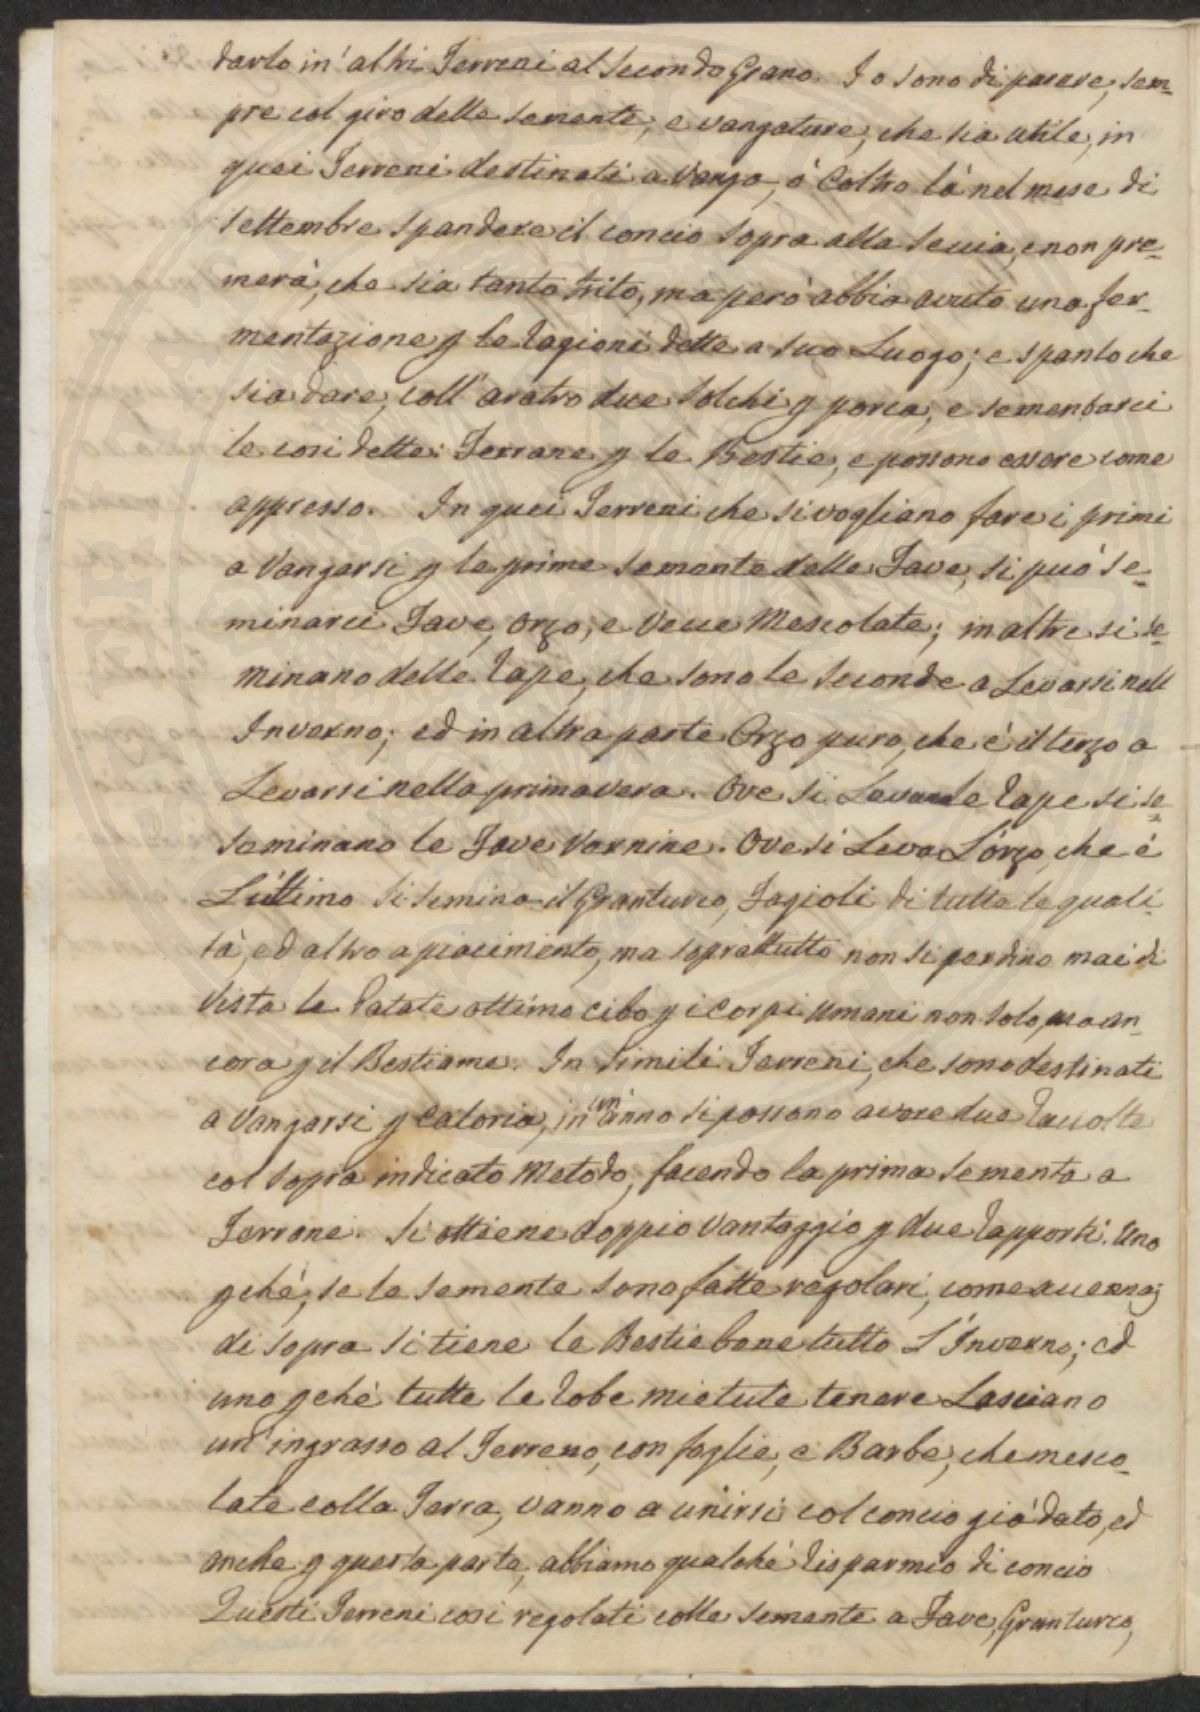 darlo in'altri Terreni al secondo Grano. Io sono di parere, sem-
pre col giro delle semente, e vangature, che sia utile, in
quei Terreni destinati a Vanga, ò Coltro là nel mese di
settembre spandere il concio sopra alla seccia, e non pre-
merà, che sia tanto trito, ma però abbia avuto una fer-
mentazione p le ragioni dette a suo Luogo; e spanto che
sia dare, coll'aratro due solchi p porca, e sementarci
le così dette: Ferrane p le Bestie, e possono essere come
appresso. In quei Terreni che si vogliano fare i primi
a Vangarsi p le prime semente delle Fave, si può se-
minarci Fave, Orzo, e Vecce Mescolate; in altre si se-
minano delle rape, che sono le seconde a Levarsi nell
Inverno; ed in altra parte Orzo puro, che è il terzo a
Levarsi nella primavera. Ove si Levano le rape si se
seminano le Fave Vernine. Ove si Leva L'orzo, che è
L'ultimo si semina il Granturco, Fagioli di tutte le quali-
tà, ed altro a piacimento, ma soprattutto non si perdino mai di
vista le Patate ottimo cibo p i Corpi umani non solo, ma an-
cora p il Bestiame. In simili Terreni, che sono destinati
a Vangarsi p Caloria, in un anno si possono avere due raccolte
col sopra indicato Metodo, facendo la prima sementa a
Ferrane. Si ottiene doppio vantaggio p due rapporti. Uno
pchè, se le semente sono fatte regolari, come accennai
di sopra si tiene le Bestie bene tutto L'Inverno; ed
uno pchè tutte le robe mietute tenere Lasciano
un'ingrasso al Terreno, con foglie, e Barbe, che mesco-
late colla Terra, vanno a unirsi col concio già dato, ed
anche p questa parte, abbiamo qualche risparmio di concio
Questi Terreni così regolati colle semente a Fave, Granturco,